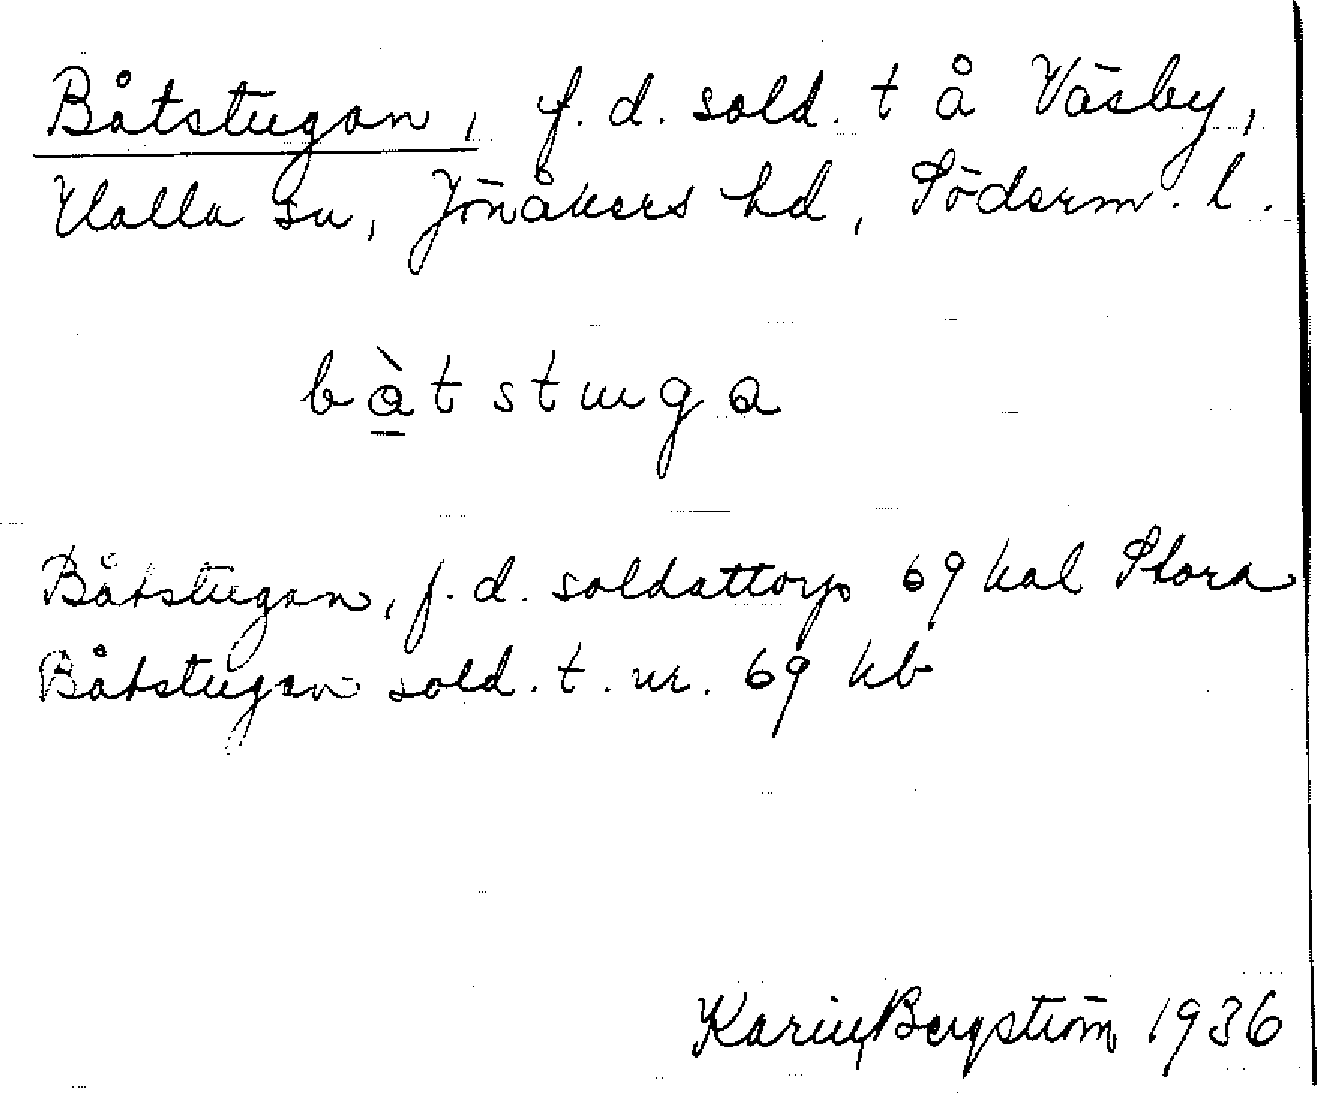 Båtstugan, f. d. sold. t å Väsby,
Halla sn, Jönåkers hd, Söderm. l.
bàtstuga
Båtstugan, f. d. soldattorp 69 kal Stora
Båtstugan sold. t. nr. 69 kb
Karin Bergström 1936